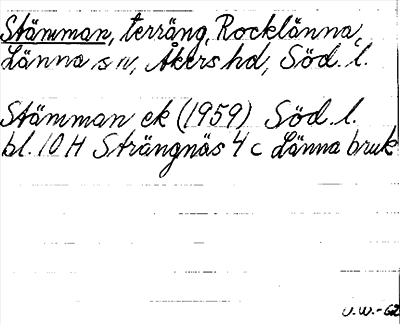 Stämman, terräng, Rocklänna,
Länna sn, Åkers hd, Söd. l.
Stämman ek (1959) Söd. l.
bl. 10 H Strängnäs 4 c Länna bruk
U.W.-62